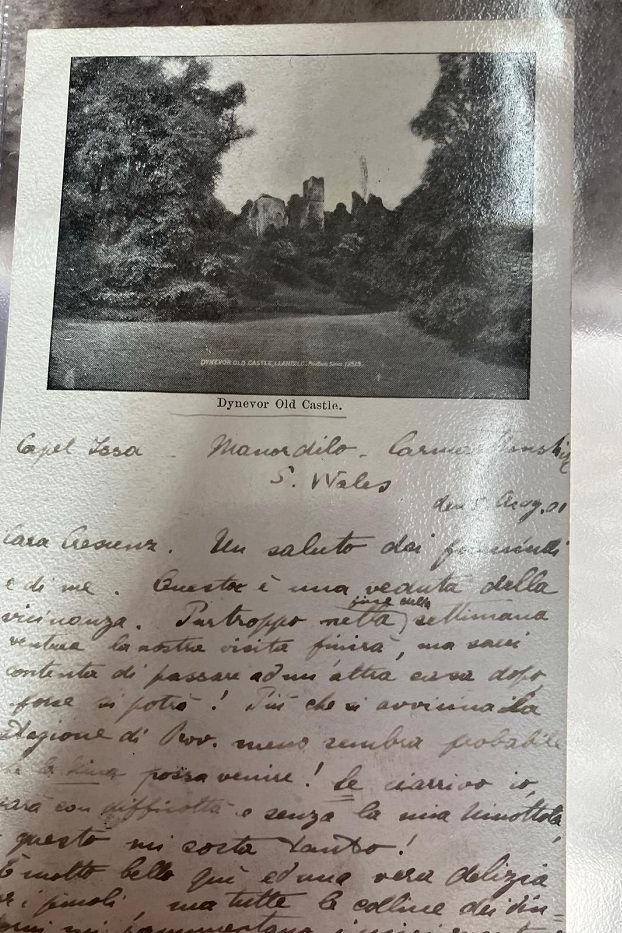 DYNEVOR OLD CASTLE, LLANDILO.
Dynevor Old Castle.
Capel Issa - Manordilo - Carmarthenshire
S. Wales
Aug. 01
Cara Crescenz. Un saluto dai
e di me. Questa è una veduta della
vicinanza. Purtroppo nella fine della settimana
ventura la nostra visita finirà, ma sarei
contenta di passare ad un'altra casa dopo,
forse si potrà! Più che si avvicina la
Stagione di Prov. meno sembra probabile
possa venire! Se ci arrivo io,
sarà con difficoltà e senza la mia
questo mi costa tanto!
È molto bello qui ed una vera delizia
ma tutte le colline dei din-